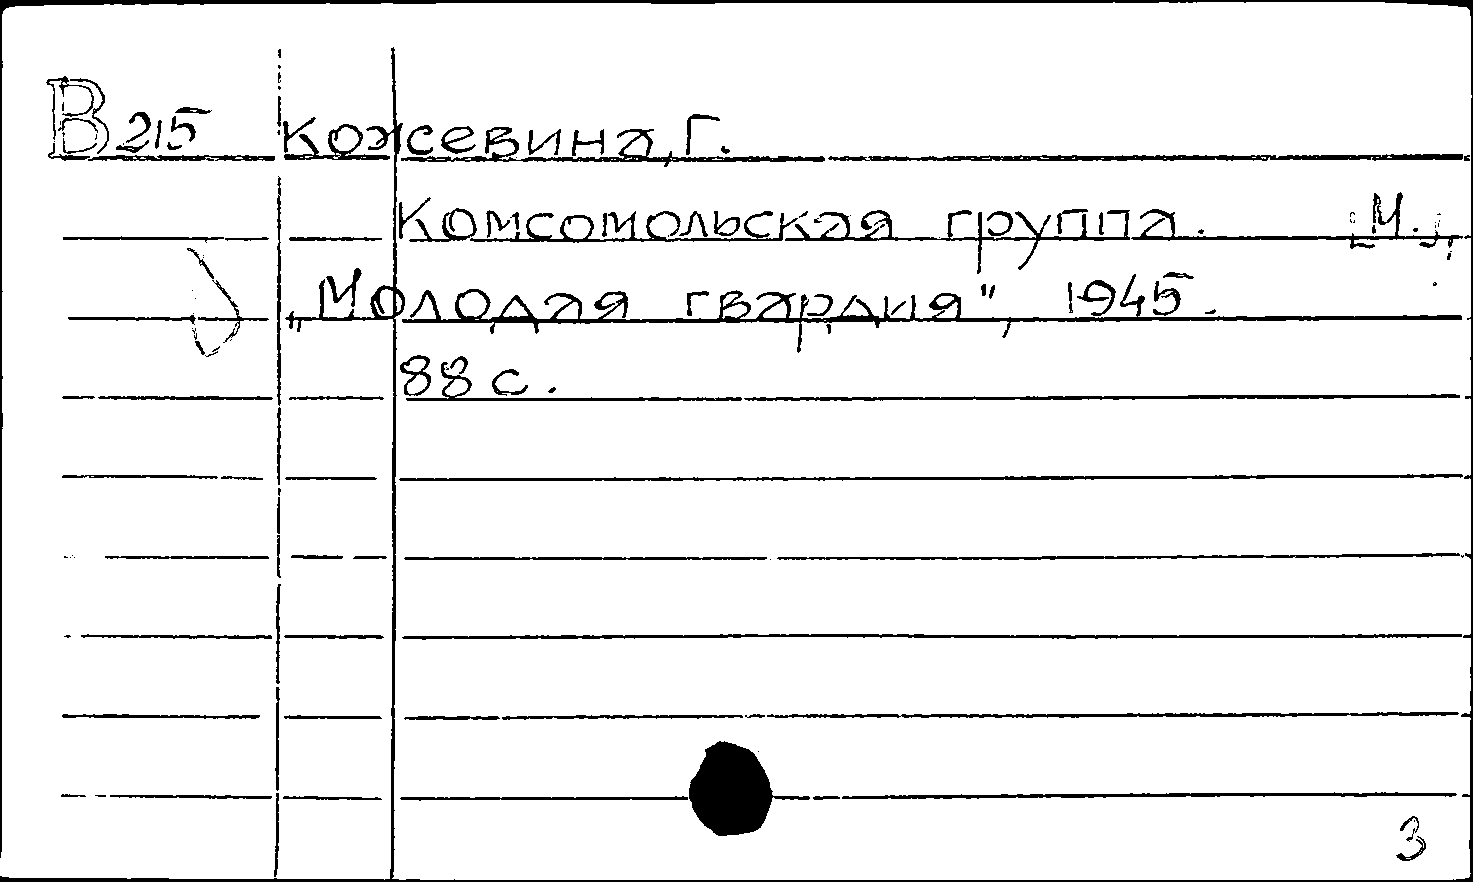 В215 Кожевина, Г.
Комсомольская группа. [М.],
„Молодая гвардия", 1945.
88 с.
3